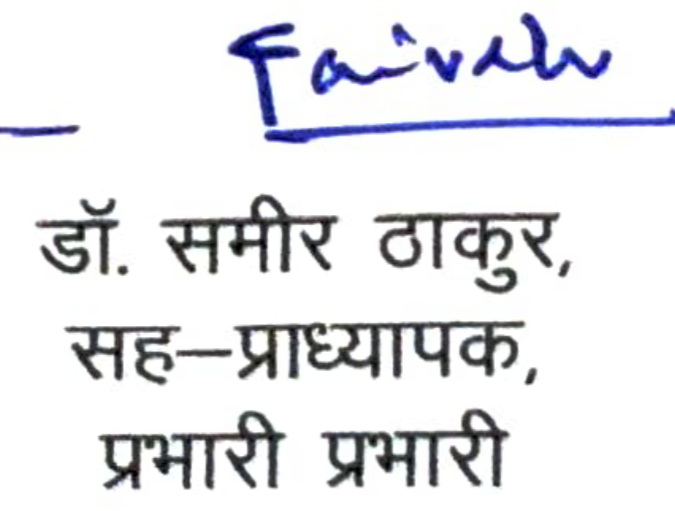 डॉ. समीर ठाकुर,
सह–प्राध्यापक,
प्रभारी प्रभारी